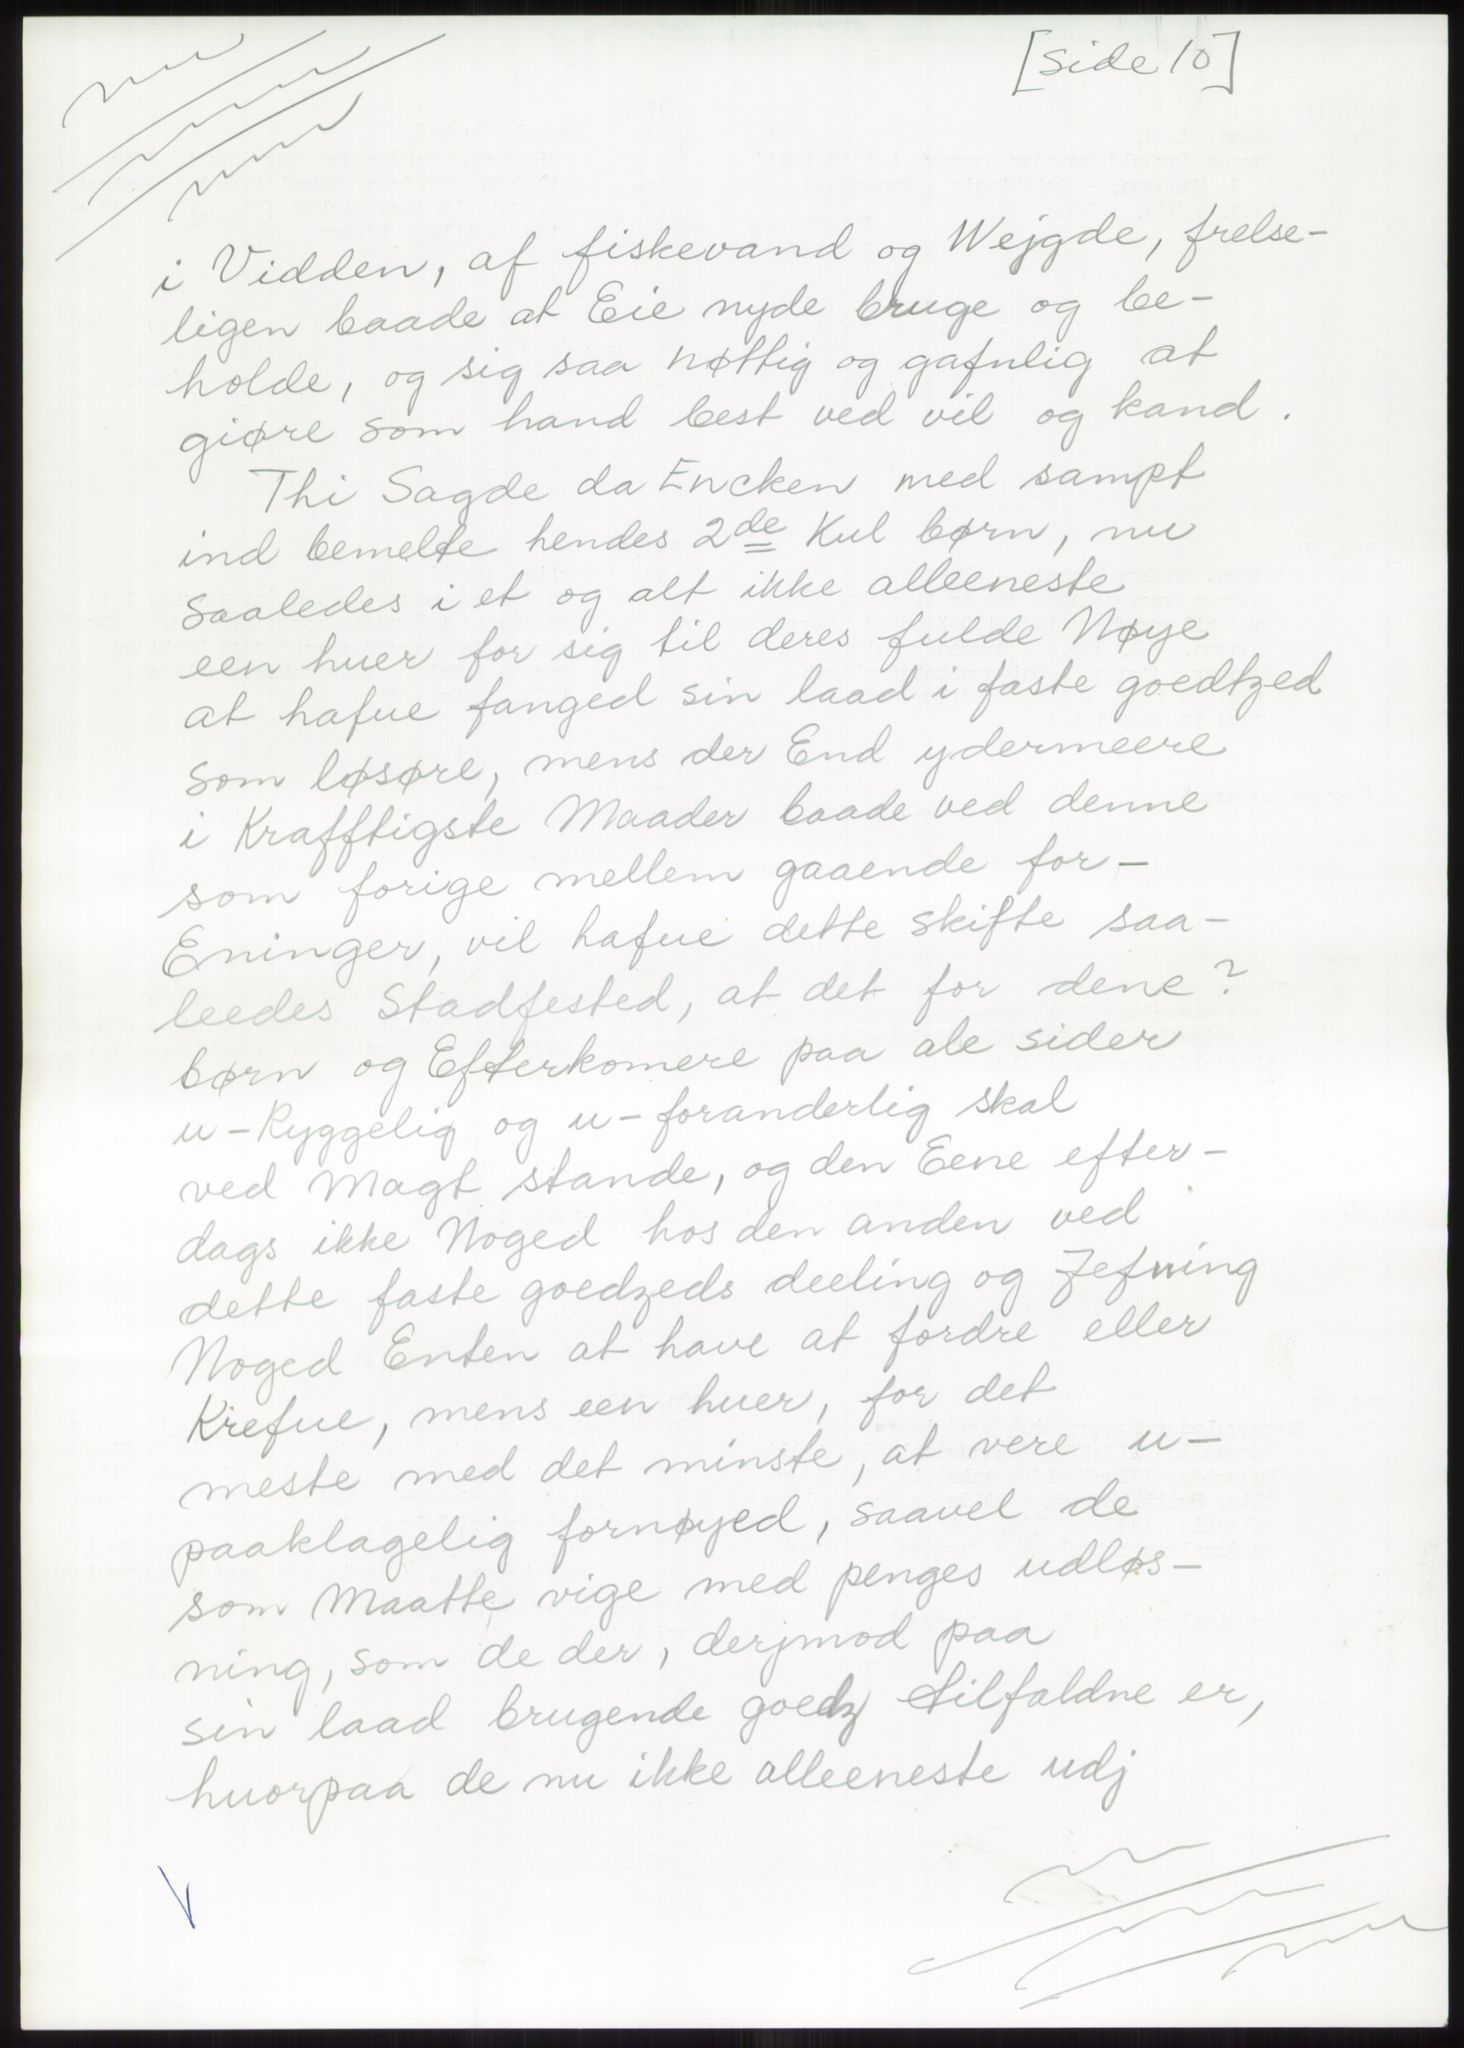 [side 10]
i Vidden, af fiskevand og Wejgde, frelse-
ligen baade at Eie nyde bruge og be-
holde, og sig saa nøttig og gafnlig at
giøre som hand best ved vil og kand.
Thi Sagde da Encken med sampt
ind bemelte hendes 2de Kul børn, nu
saaledes i et og alt ikke alleeneste
een huer for sig til deres fulde Nøye
at hafue fanged sin laad i faste goedtzed
som løsøre, mens der End ydermeere
i Krafftigste Maader baade ved denne
som forige mellem gaaende for-
Eninger, vil hafue dette skifte saa-
leedes Stadfested, at det for dene?
børn og Efterkomere paa ale sider
u-Ryggelig og u-foranderlig skal
ved Magt stande, og den Eene efter-
dags ikke Noged hos den anden ved
dette faste goedzeds deeling og Jefning
Noged Enten at have at fordre eller
Krefue, mens een huer, for det
meste med det minste, at vere u-
paaklagelig fornøyed, saavel de
som Maatte vige med penges udløs-
ning, som de der, derjmod paa
sin laad brugende goedz tilfaldne er,
huorpaa de nu ikke alleeneste udj